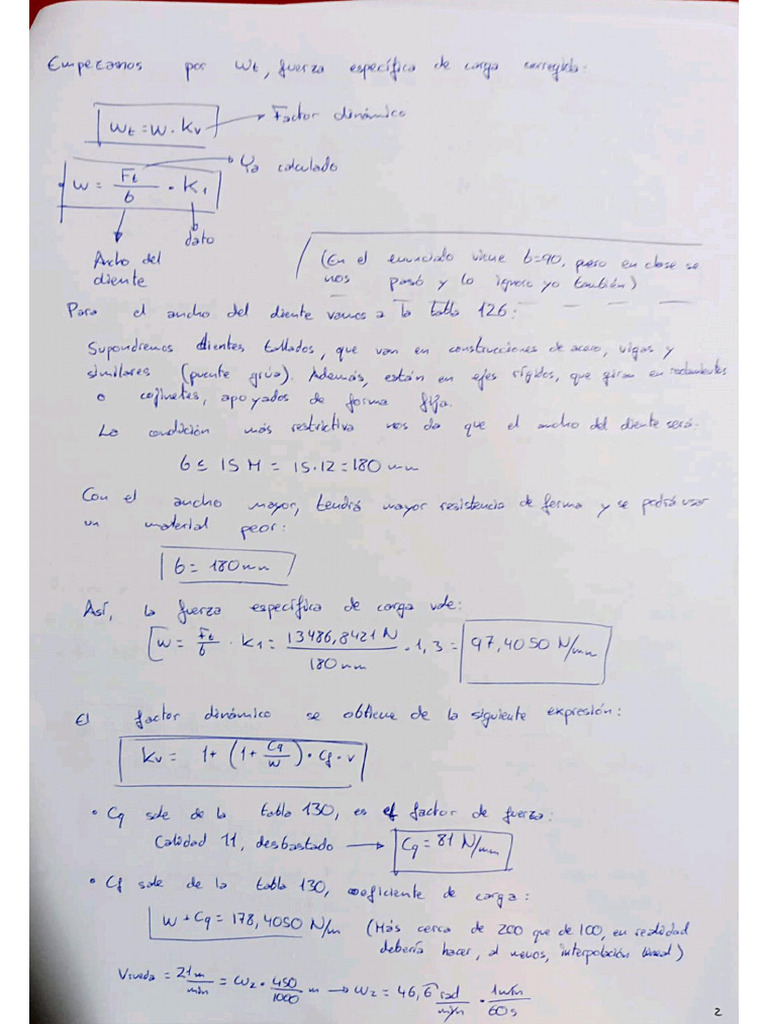 Empezamos por Wt, fuerza específica de carga corregida:
Wt = W · Kv → Factor dinámico
W = Ft/b · K1 → Ya calculado
dato
Ancho del
diente
(En el enunciado viene b=90, pero en clase se
nos pasó y lo ignoro yo también)
Para el ancho del diente vamos a la tabla 126:
Supondremos dientes tallados, que van en construcciones de acero, vigas y
similares (puente grúa). Además, están en ejes rígidos, que giran en rodamientos
o cojinetes, apoyados de forma fija.
La condición más restrictiva nos da que el ancho del diente será:
b ≤ 15 M = 15·12 = 180 mm
Con el ancho mayor, tendrá mayor resistencia de forma y se podrá usar
un material peor:
b = 180 mm
Así, la fuerza específica de carga vale:
W = Ft/b · K1 = 13486,8421 N/180 mm · 1,3 = 97,4050 N/mm
El factor dinámico se obtiene de la siguiente expresión:
Kv = 1 + (1 + Cq/W) · Cf · v
• Cq sale de la tabla 130, es el factor de fuerza:
Calidad 11, desbastado → Cq = 81 N/mm
• Cf sale de la tabla 130, coeficiente de carga:
W + Cq = 178,4050 N/m (Más cerca de 200 que de 100, en realidad
debería hacer, al menos, interpolación lineal)
Vrueda = 21 m/min = ω2 · 450/1000 m → ω2 = 46,6 rad/min · 1 min/60 s
2